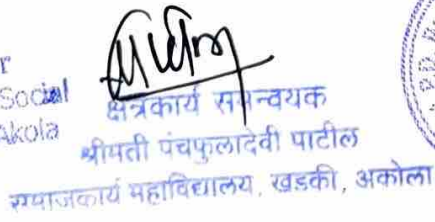 r
Social
Akola
क्षेत्रकार्य समन्वयक
श्रीमती पंचफुलादेवी पाटील
समाजकार्य महाविद्यालय, खडकी, अकोला